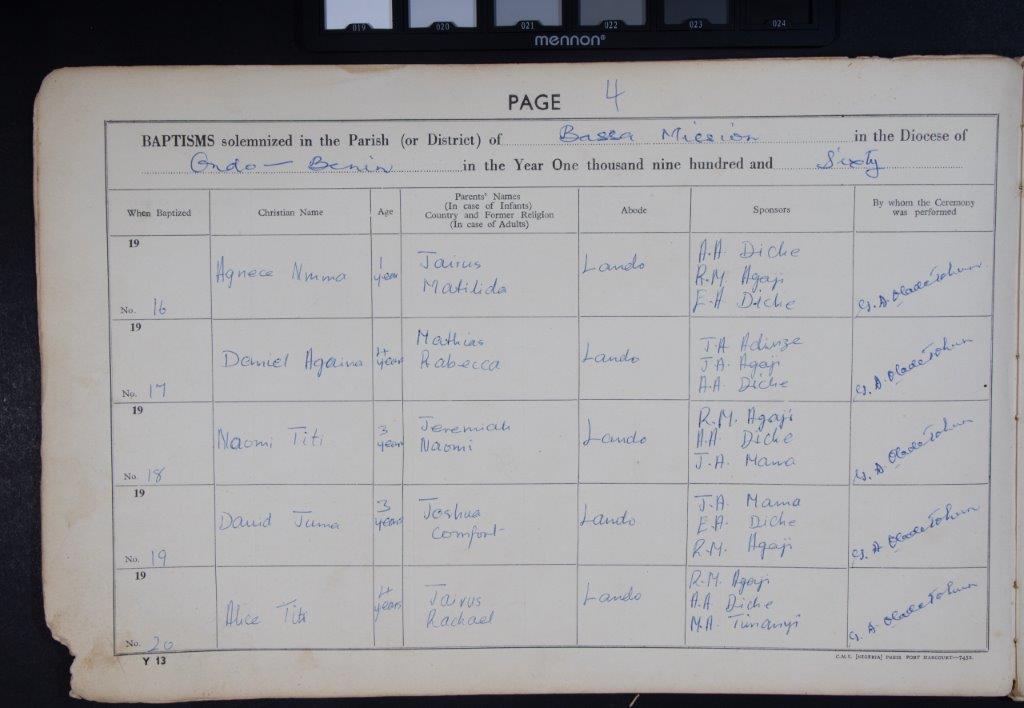 019 020 021 022 023 024
mennon®
PAGE 4
BAPTISMS solemnized in the Parish (or District) of Bassa Mission in the Diocese of
Ondo - Benin in the Year One thousand nine hundred and Sixty
When Baptized
Christian Name
Age
Parents' Names
(In case of Infants)
Country and Former Religion
(In case of Adults)
Abode
Sponsors
By whom the Ceremony
was performed
19
No. 16
Agnece Nmma
1
year
Jairus
Matilida
Lando
A.A. Diche
R.M. Agaji
E.A Diche
G. A. Oladetohun
19
No. 17
Daniel Againa
4
years
Mathias
Rabecca
Lando
J.A. Adinze
J.A. Agaji
A.A. Diche
G. A. Oladetohun
19
No. 18
Naomi Titi
3
years
Jeremiah
Naomi
Lando
R.M. Agaji
A.A. Diche
J.A. Mama
G. A. Oladetohun
19
No. 19
David Juma
3
years
Joshua
Comfort
Lando
J.A. Mama
E.A. Diche
R.M. Agaji
G. A Oladetohun
19
No. 20
Alice Titi
4
years
Jairus
Rachael
Lando
R.M. Agaji
A.A Diche
M.A. Timanyi
G. A Oladetohun
Y 13
C.M.S. (NIGERIA) PRESS PORT HARCOURT—7452.